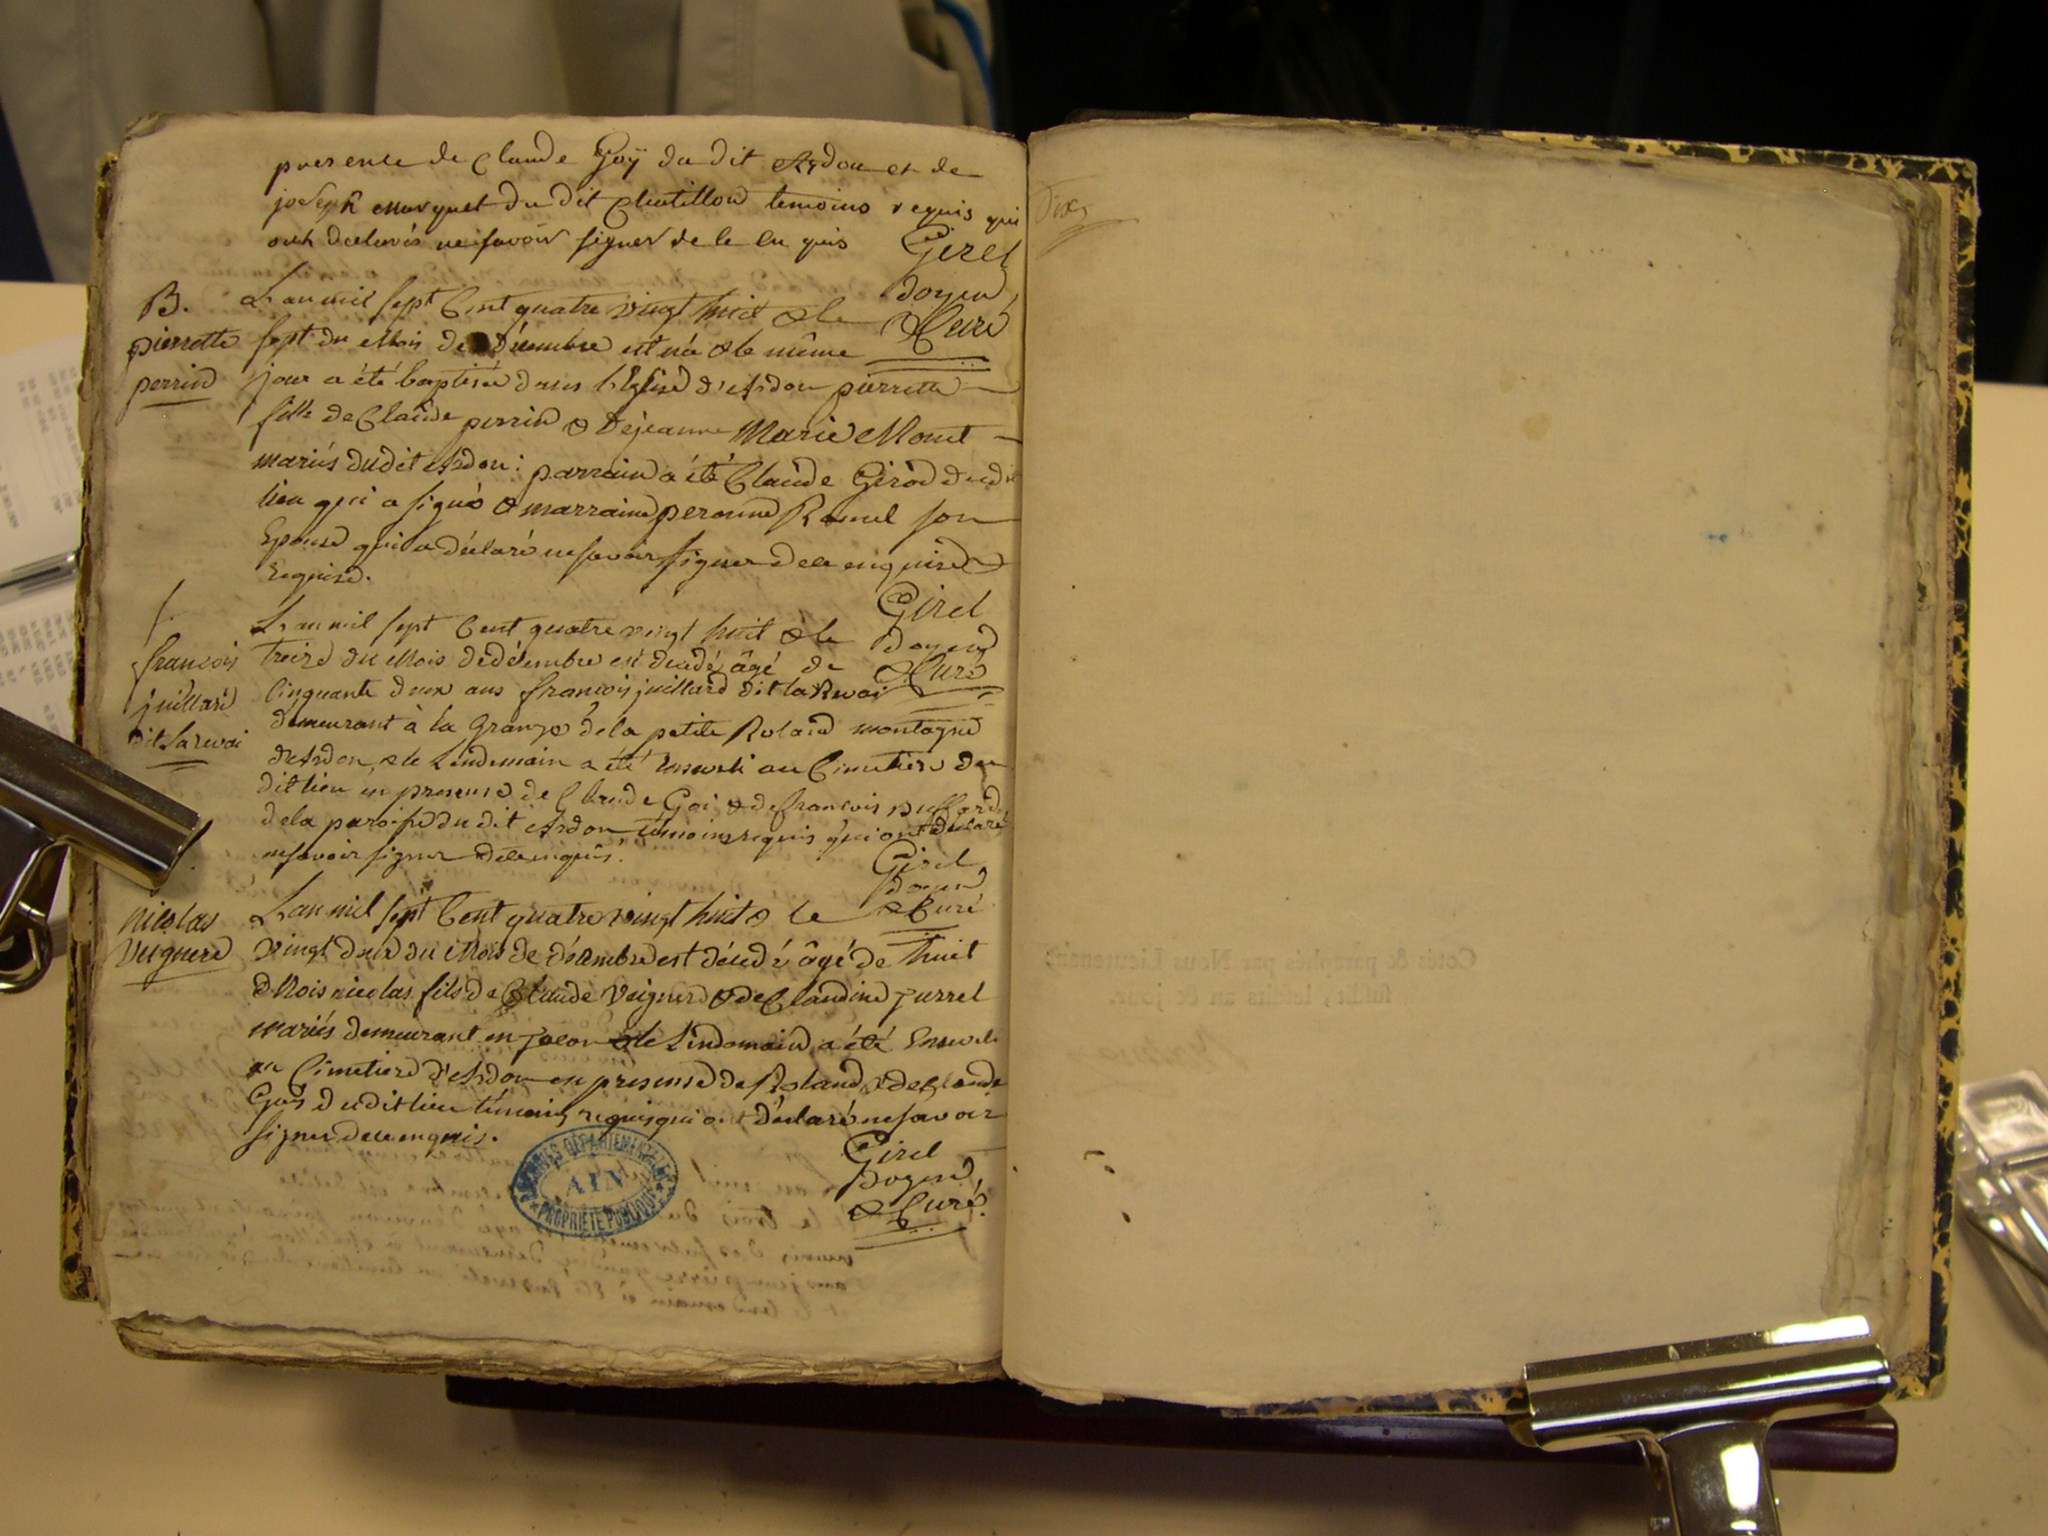 presence de Claude Goÿ du dit Ardon et de
joseph Marquet du dit Chatillon temoins requis qui
ont declarés ne savoir signer de ce en quis
Girel
doyen
& Curé
B.
pierrette
perrin
L'an mil sept Cent quatre vingt huit & le
sept du Mois de décembre est née & le même
jour a été baptisée dans l'Eglise d'Ardon pierrette
fille de Claude perrin & de jeanne Marie Monet
mariés dudit Ardon: parrain a été Claude Girod dudit
lieu qui a signé & marraine peronne Ramel son
Epouse qui a déclaré ne savoir signer de ce enquise &
requise.
Girel
doyen
& Curé
françois
juillard
dit Larevoi
L'an mil sept Cent quatre vingt huit & le
treize du Mois de décembre est décédé âgé de
Cinquante deux ans françois juillard dit la Revoi
demeurant à la Grange de la petite Roland montagne
d'Ardon, & le Lendemain a été Enseveli au Cimetiere du
dit lieu en presence de Claude Goi & de françois puffard
de la paroisse du dit Ardon témoins requis qui ont déclaré
ne savoir signer de ce enquis.
Girel
doyen
& Curé
nicolas
Veignere
L'an mil sept Cent quatre vingt huit & le
vingt deux du Mois de décembre est décédé âgé de huit
Mois nicolas fils de Claude Veignere & de Claudine jurrel
mariés demeurant en & le Lendemain a été Enseveli
au Cimetiere d'Ardon en presence de Roland & de Claude
Gois dudit lieu témoins requis qui ont déclaré ne savoir
signer de ce enquis.
Girel
Doyen
& Curé
ARCHIVES DÉPARTEMENTALES
AIN
PROPRIÉTÉ PUBLIQUE
Dix